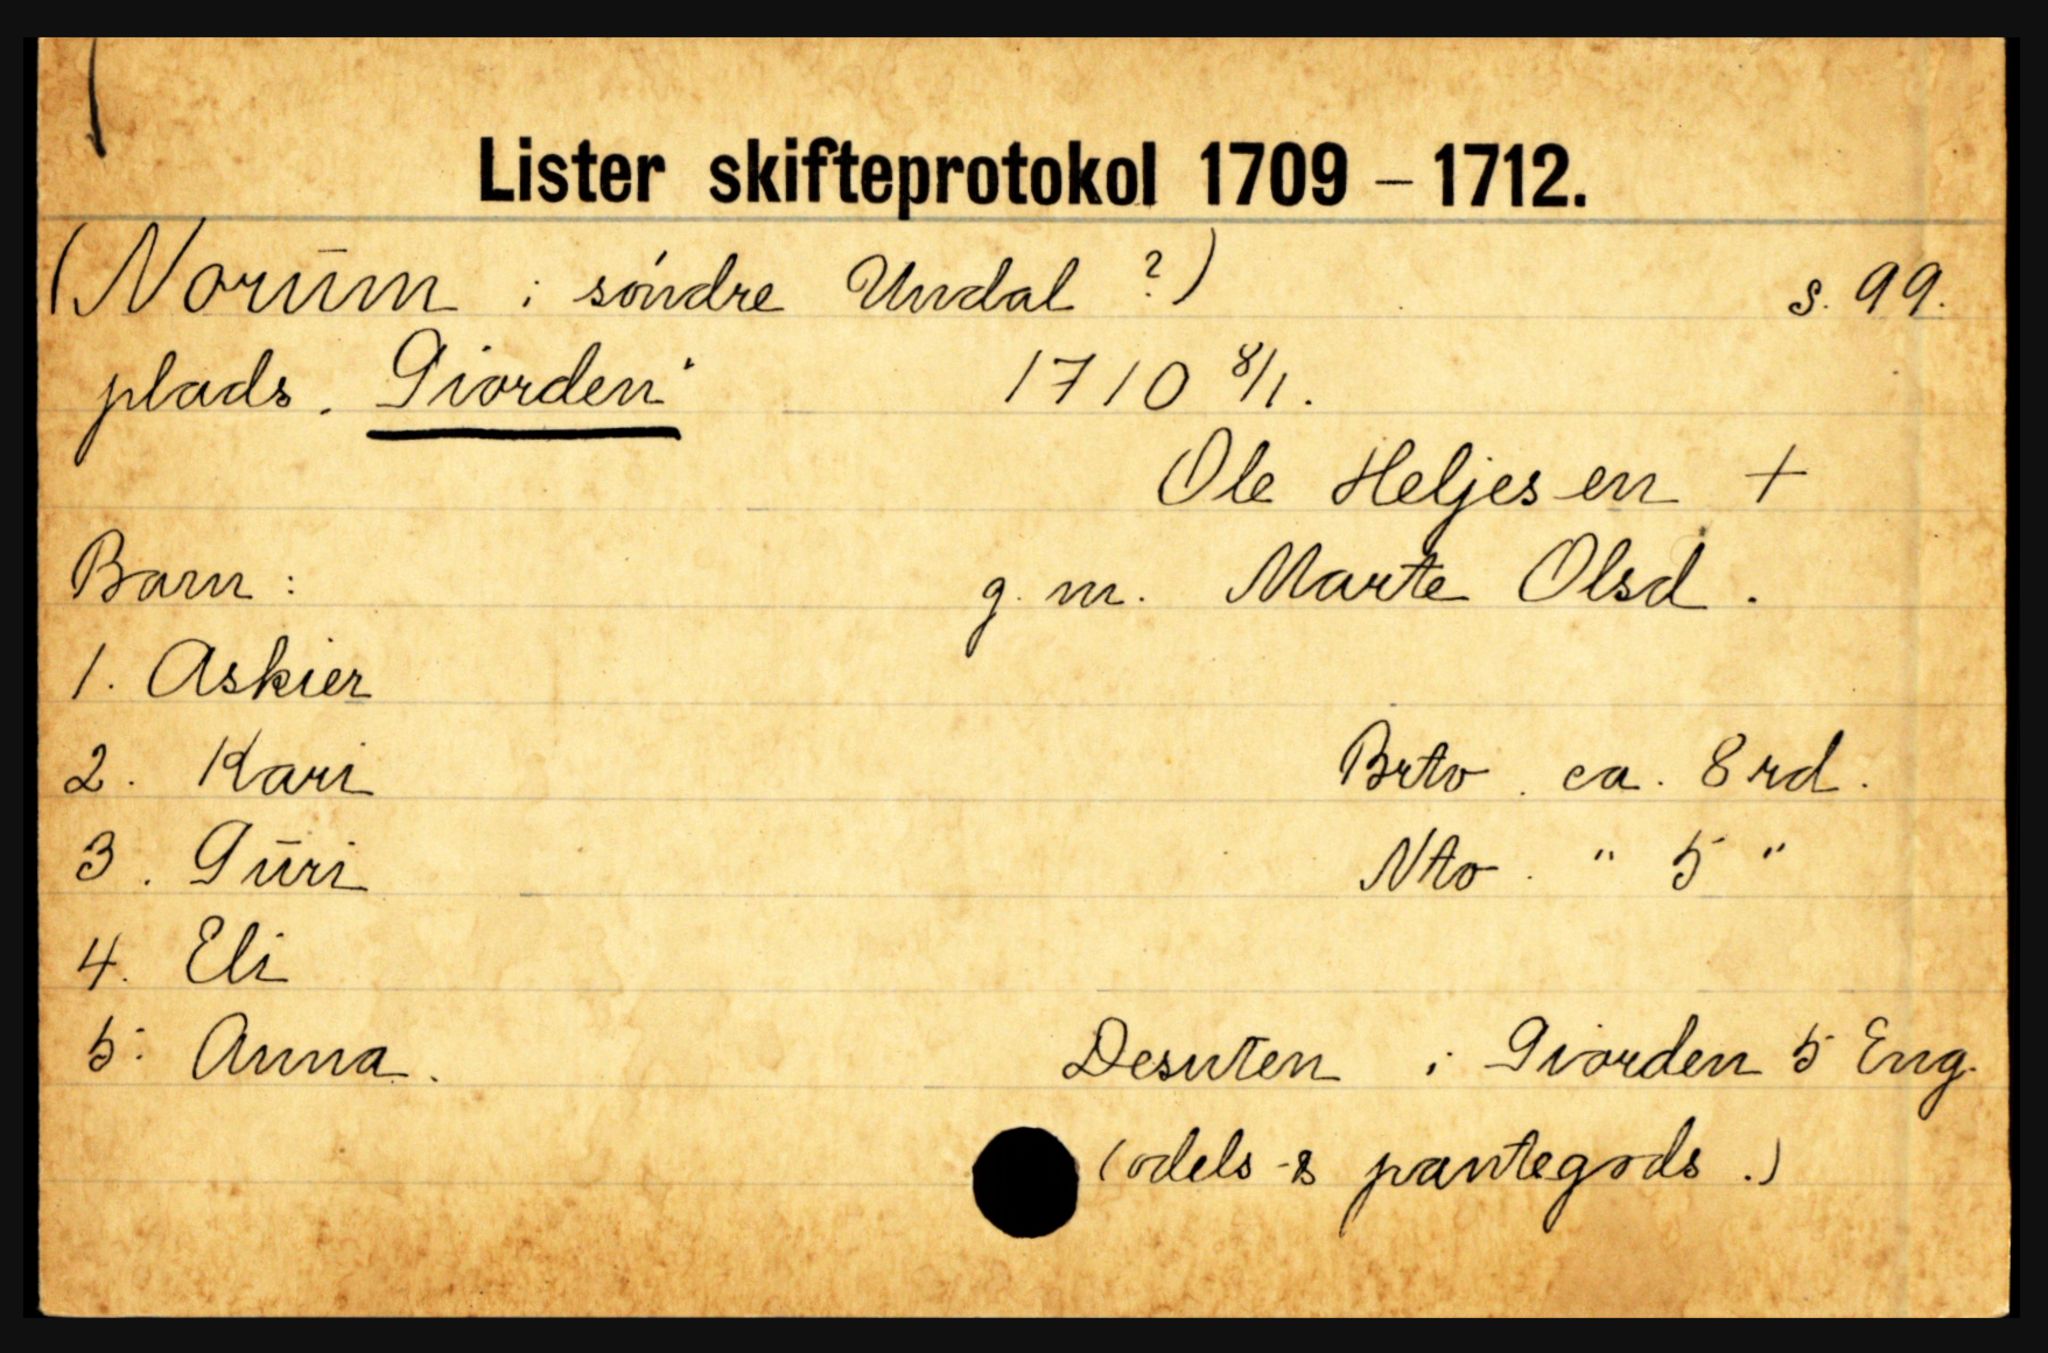 Lister skifteprotokol 1709 – 1712.
(Norum i søndre Undal ?) s. 99.
plads. Giorden 1710 8/1.
Ole Heljesen +
Barn : g. m. Marte Olsd.
1. Askier
2. Kari Brto. ca. 8 rd.
3. Guri Nto. " 5 "
4. Eli
5. Anna. Desuten i Giorden 5 Eng.
(odels- & pantegods.)